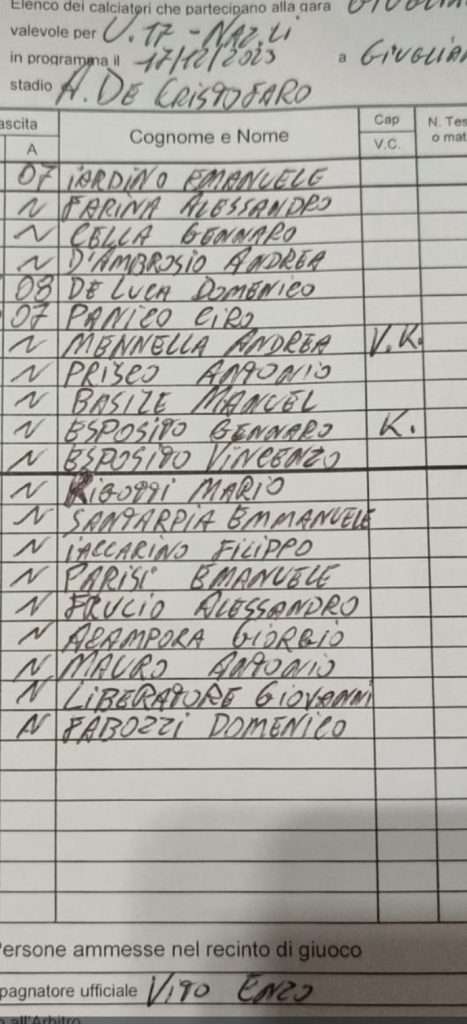 Elenco dei calciatori che partecipano alla gara GIUGLIA
valevole per U.17 - NAZ.LI
in programma il 17/12/2023 a GIUGLIAN
stadio A. DE CRISTOFARO
ascita Cognome e Nome Cap N. Tes
A V.C. o mat
07 IARDINO EMANUELE
N FARINA ALESSANDRO
N CELLA GENNARO
N D'AMBROSIO ANDREA
08 DE LUCA DOMENICO
07 PANICO CIRO
N MENNELLA ANDREA V.K.
N PRISCO ANTONIO
N BASILE MANUEL
N ESPOSITO GENNARO K.
N ESPOSITO VINCENZO
N RIGOTTI MARIO
N SANTARPIA EMMANUELE
N IACCARINO FILIPPO
N PARISI EMANUELE
N FRUCIO ALESSANDRO
N ACAMPORA GIORGIO
N MAURO ANTONIO
N LIBERATORE GIOVANNI
N FABOZZI DOMENICO
Persone ammesse nel recinto di giuoco
pagnatore ufficiale VITO ENZO
all'Arbitro